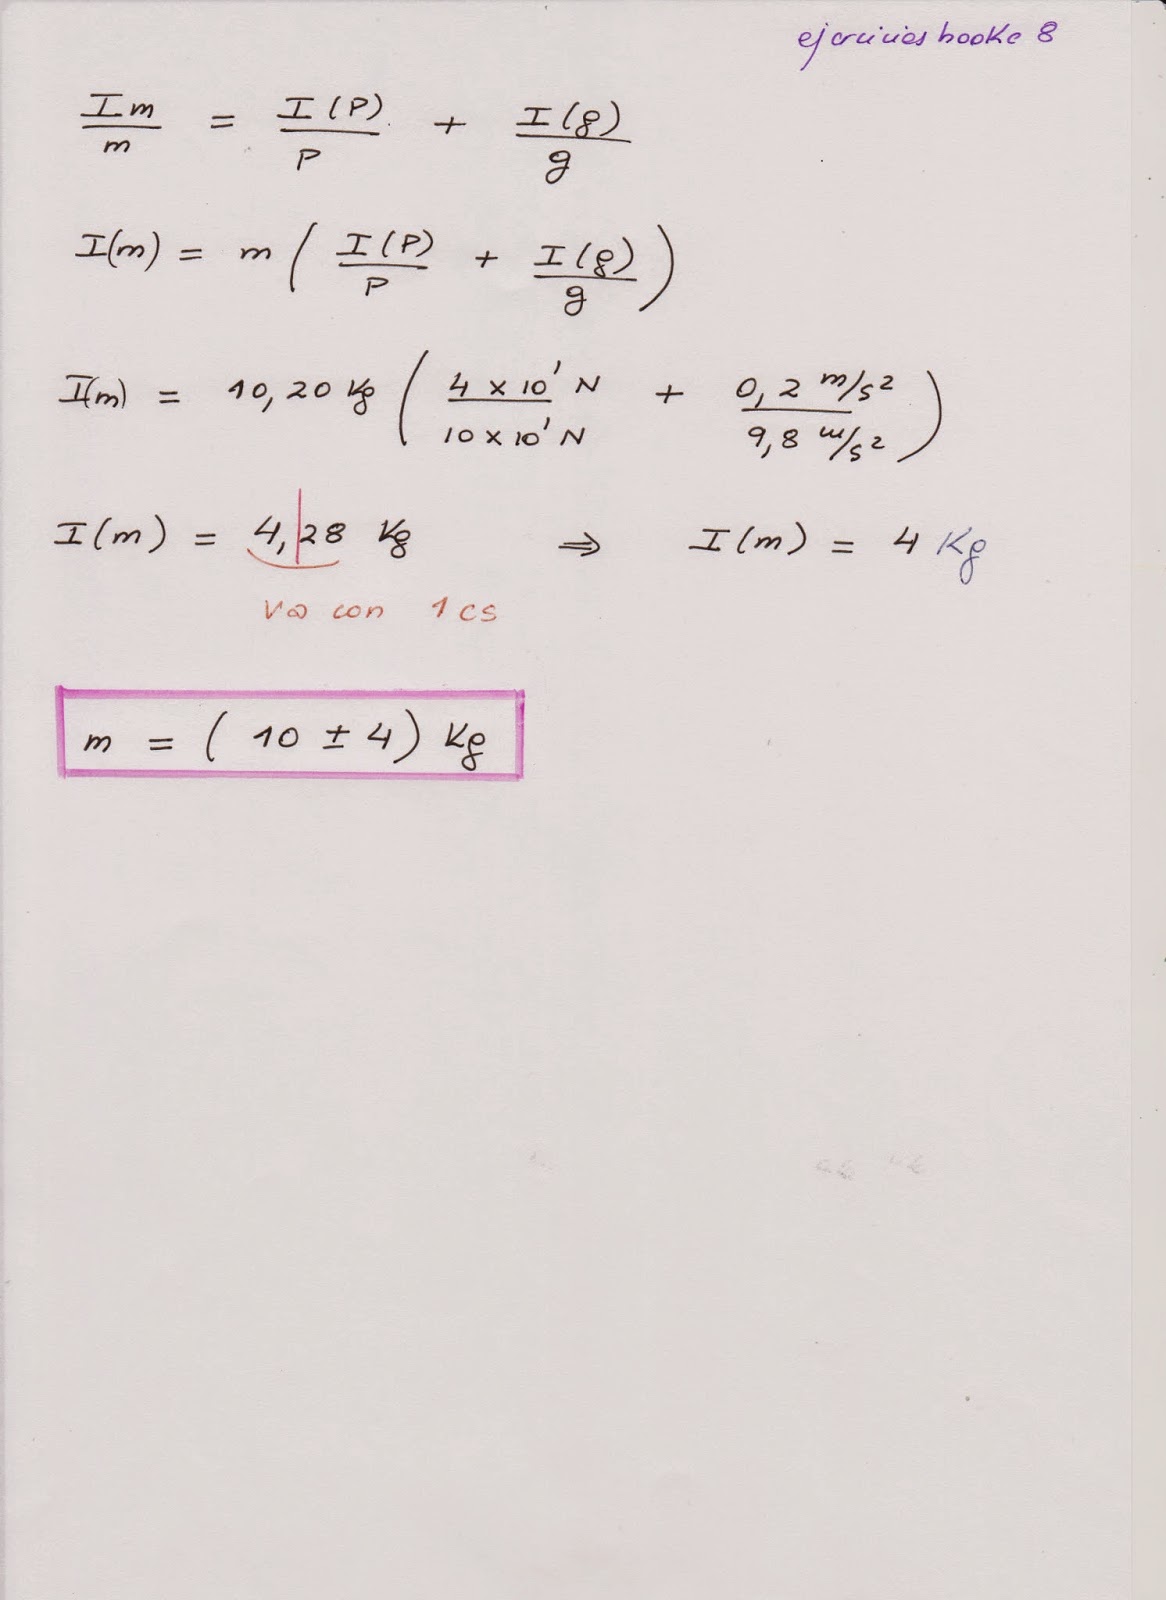 ejercicios hooke 8
Im/m = I(P)/P + I(g)/g
I(m) = m ( I(P)/P + I(g)/g )
I(m) = 10,20 Kg ( 4 x 10' N / 10 x 10' N + 0,2 m/s² / 9,8 m/s² )
I(m) = 4,28 Kg ⇒ I(m) = 4 Kg
va con 1 cs
m = ( 10 ± 4) Kg